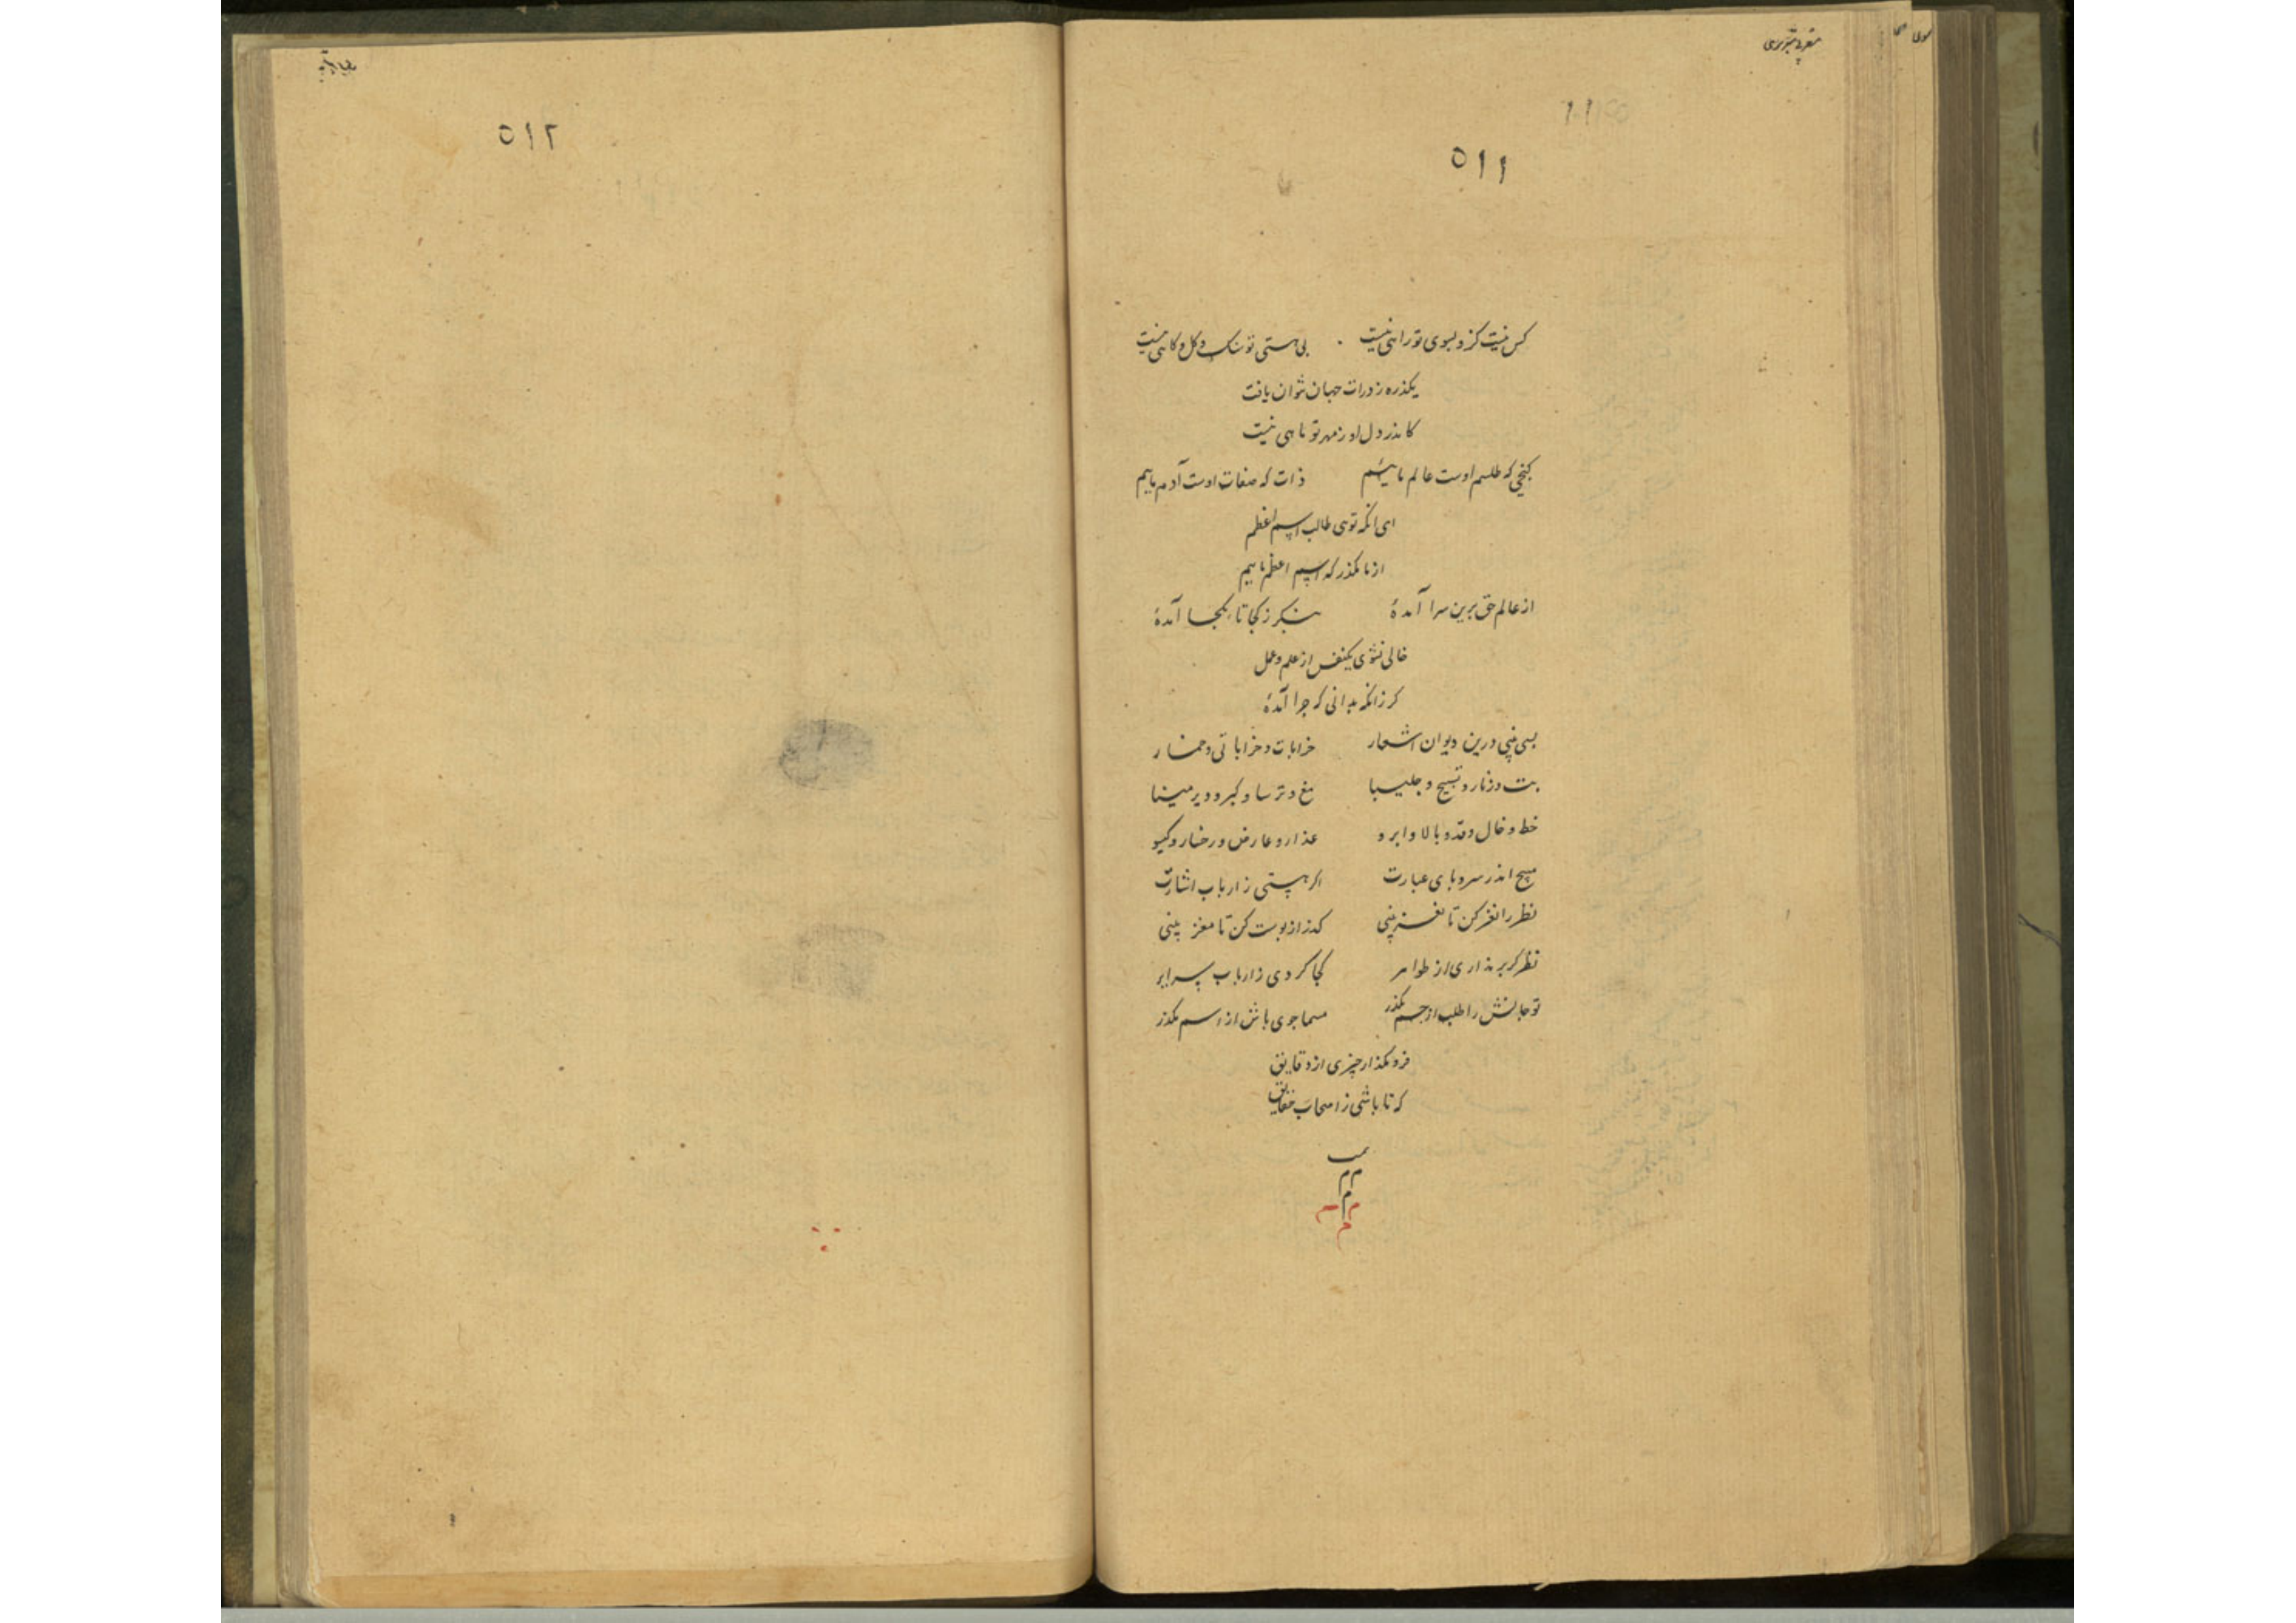 مغربی تبریزی
٥١١
کس نیست کزو بسوی تو راهی نیست بی هستی تو سنک و کل و کاهی نیست
یکذره ز ذرات جهان نتوان یافت
کاندر دل او ز مهر تو ماهی نیست
کنجی که طلسم اوست عالم ماییم ذات که صفات اوست آدم ماییم
ای انکه تویی طالب اسم اعظم
از ما مکذر که اسم اعظم ماییم
از عالم حق برین سرا آمدۀ بنکر ز کجا تا بکجا آمدۀ
خالی نشوی یکنفس از علم و عمل
کر زانکه بدانی که چرا آمدۀ
بسی بینی درین دیوان اشعار خرابات و خراباتی و خمار
بت و زنار و تسبیح و چلیپا مغ و ترسا و کبر و دیر مینا
خط و خال و قد و بالا و ابرو عذار و عارض و رخسار و کیسو
مپیچ اندر سر و پای عبارت اکر هستی ز ارباب اشارت
نظر را نغز کن تا نغز بینی کذر از پوست کن تا مغز بینی
نظر کر بر نداری از ظواهر کجا کردی ز ارباب سرایر
تو جانش را طلب از جسم بکذر مسما جوی باش از اسم بکذر
فرو مکذار چیزی از دقایق
که تا باشی ز اصحاب حقایق
٥١٢